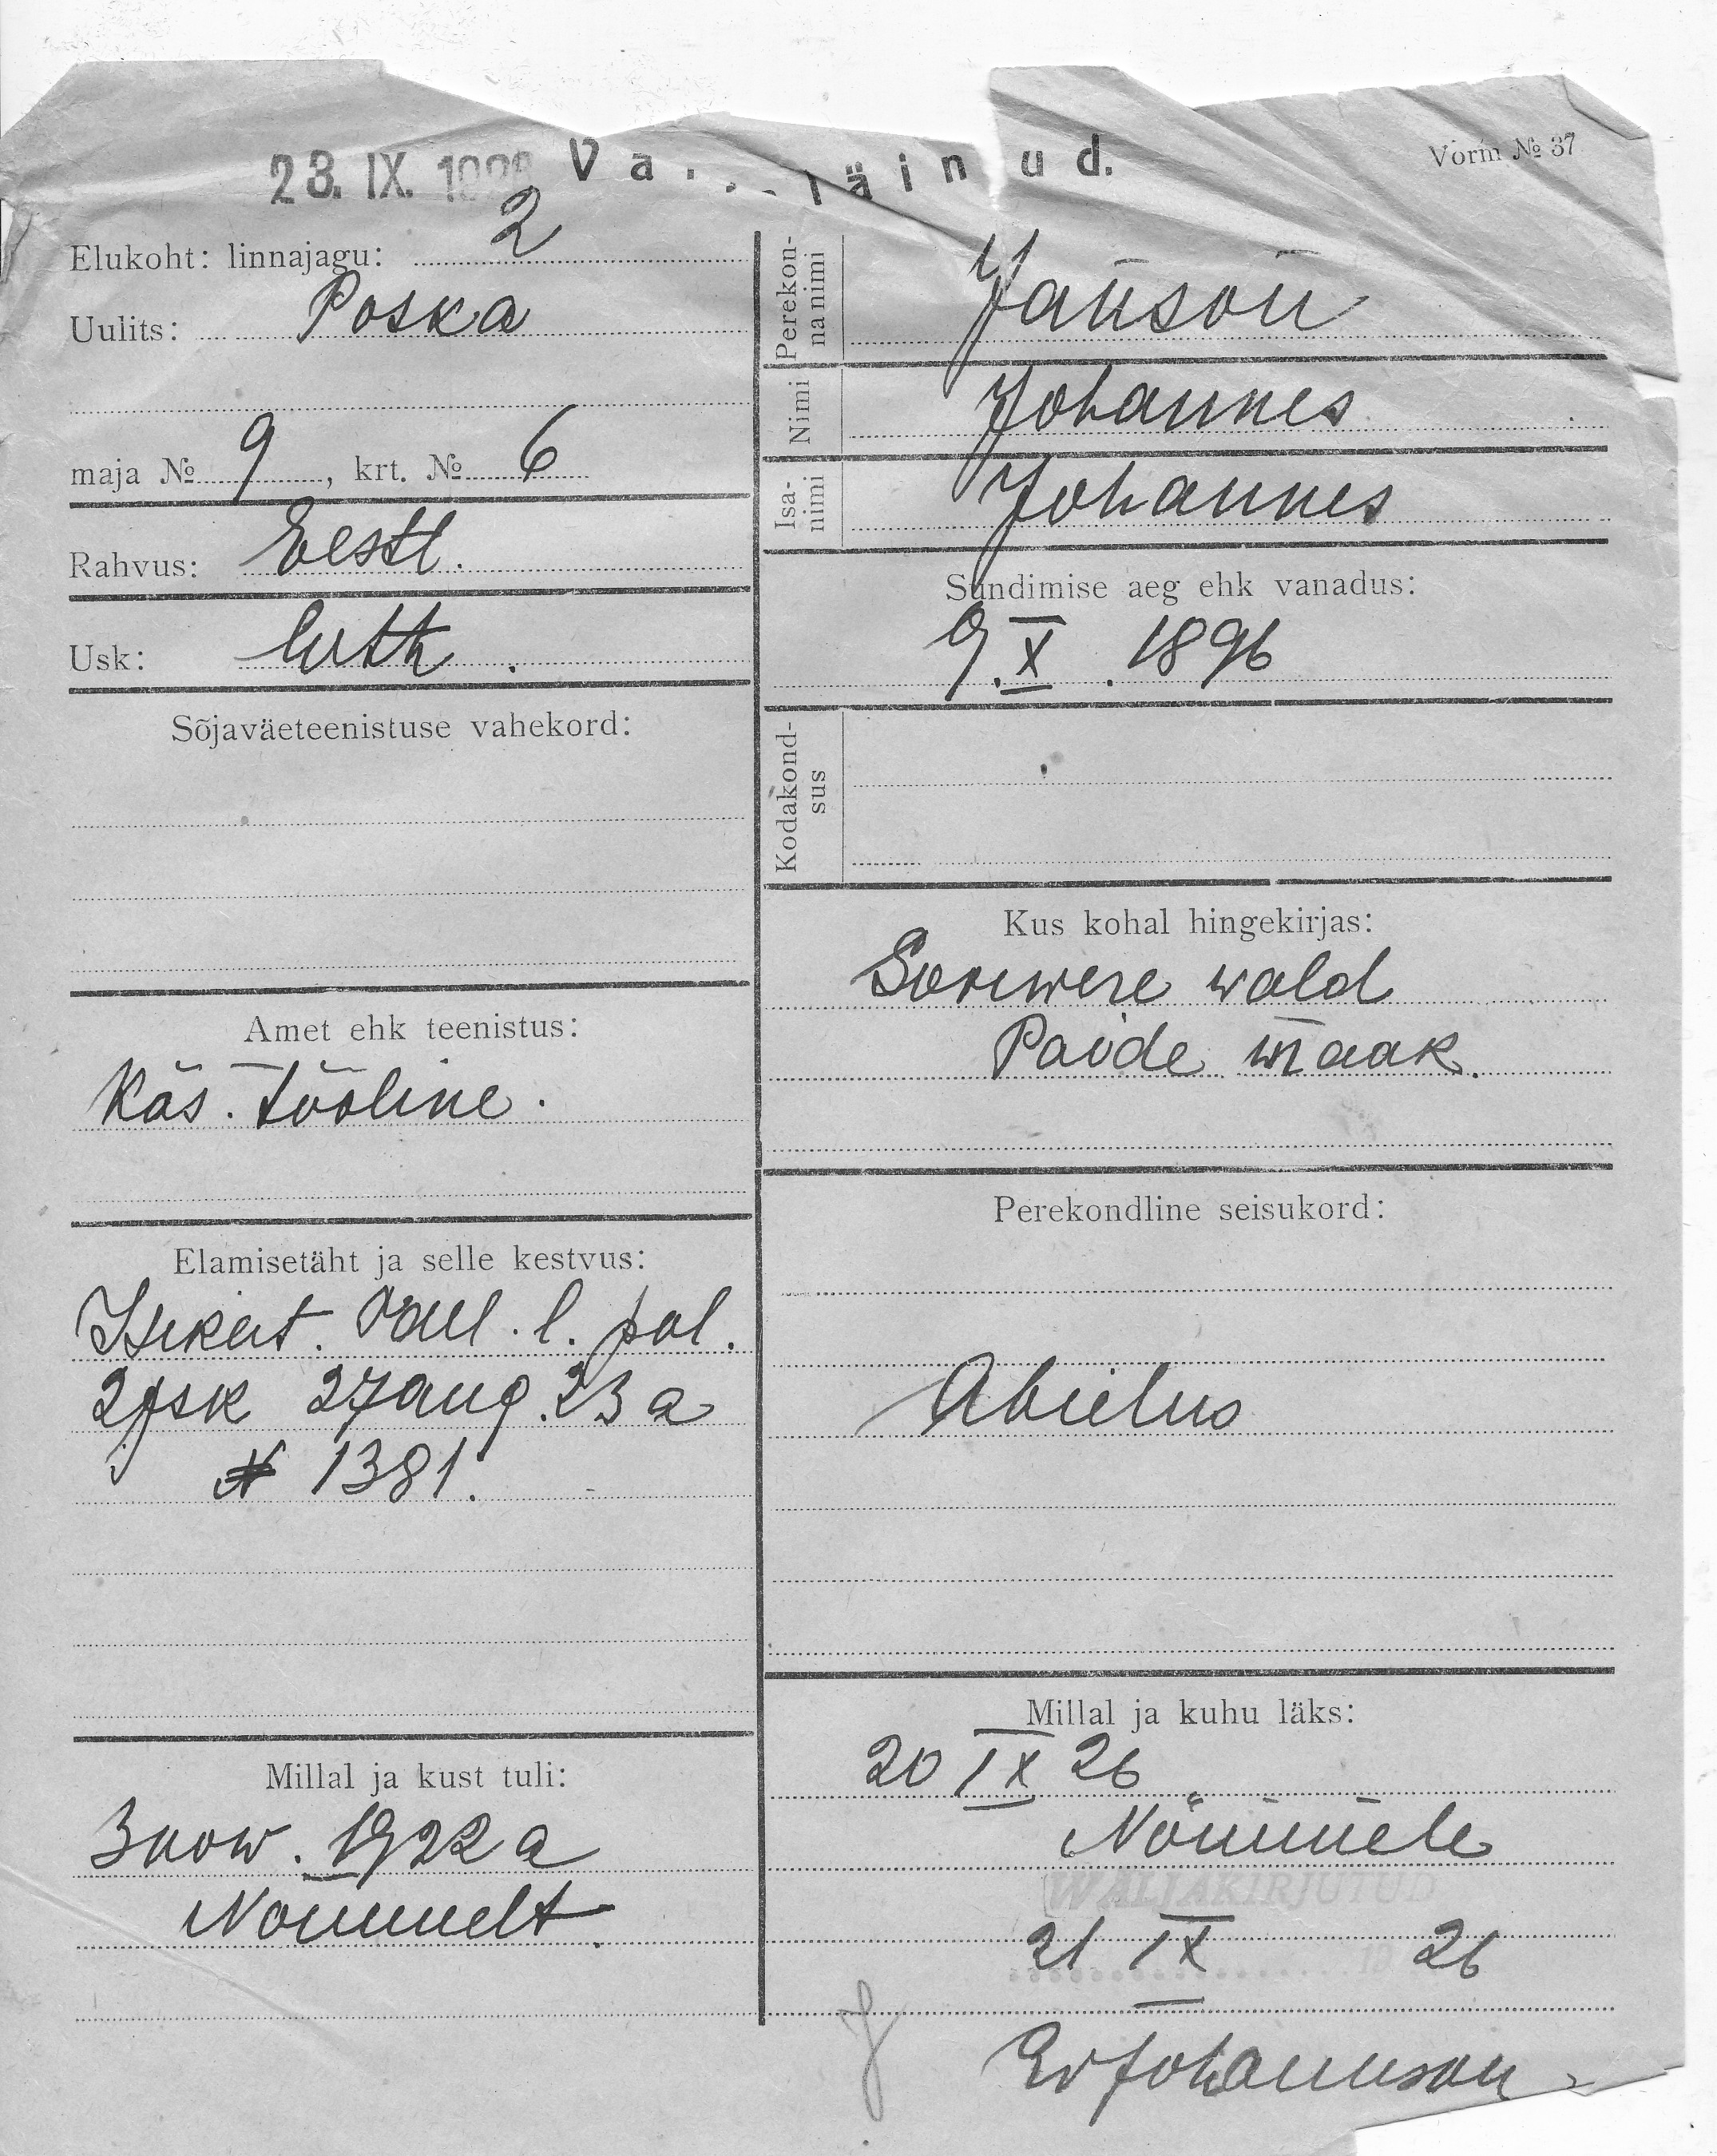 23. IX. 1926 Va... läinud.
Vorm № 37
Elukoht: linnajagu: 2
Uulits: Poska
maja № 9, krt. № 6
Rahvus: Eestl.
Usk: luth.
Sõjaväeteenistuse vahekord:
Amet ehk teenistus:
Käs. tööline.
Elamisetäht ja selle kestvus:
Isikut. Tall. l. pol.
2 jsk 27 aug. 23 a
N 1381.
Millal ja kust tuli:
3 now. 1922 a
Nõmmelt.
Perekonnanimi
Janson
Nimi
Johannes
Isanimi
Johannes
Sündimise aeg ehk vanadus:
9. X. 1896
Kodakondsus
Kus kohal hingekirjas:
wald
Paide maak.
Perekondline seisukord:
Abielus
Millal ja kuhu läks:
20 IX 26
Nõmmele
WÄLJAKIRJUTUD
21 IX 1926
Johannson